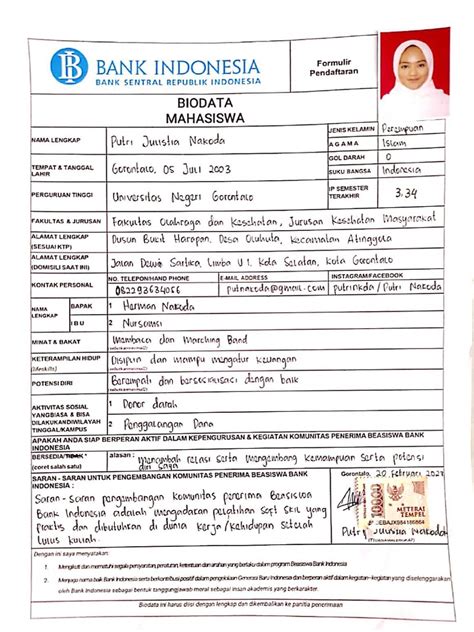 BANK INDONESIA
BANK SENTRAL REPUBLIK INDONESIA
Formulir
Pendaftaran
BIODATA
MAHASISWA
NAMA LENGKAP Putri Juristia Nakoda
JENIS KELAMIN Perempuan
AGAMA Islam
GOL DARAH O
TEMPAT & TANGGAL
LAHIR
Gorontalo, 05 Juli 2003
SUKU BANGSA Indonesia
PERGURUAN TINGGI Universitas Negeri Gorontalo
IP SEMESTER
TERAKHIR
3.34
FAKULTAS & JURUSAN Fakultas Olahraga dan Kesehatan, Jurusan Kesehatan Masyarakat
ALAMAT LENGKAP
(SESUAI KTP)
Dusun Bukit Harapan, Desa Oluhuta, Kecamatan Atinggola
ALAMAT LENGKAP
(DOMISILI SAAT INI)
Jalan Dewi Sartika, Limba U 1. Kota Selatan, Kota Gorontalo
KONTAK PERSONAL
NO. TELEPON/HAND PHONE E-MAIL ADDRESS INSTAGRAM/FACEBOOK
082293634056 putnakoda@gmail.com putrinkda / Putri Nakoda
NAMA
LENGKAP
BAPAK 1 Herman Nakoda
IBU 2 Nursamsi
MINAT & BAKAT Membaca dan Marching Band
KETERAMPILAN HIDUP
(lifeskills)
Disiplin dan mampu mengatur keuangan
POTENSI DIRI Berempati dan bersosialisasi dengan baik
AKTIVITAS SOSIAL
YANG BIASA & BISA
DILAKUKAN DIWILAYAH
TINGGAL/KAMPUS
1 Donor darah
2 Penggalangan Dana
APAKAH ANDA SIAP BERPERAN AKTIF DALAM KEPENGURUSAN & KEGIATAN KOMUNITAS PENERIMA BEASISWA BANK INDONESIA
BERSEDIA/TIDAK
(coret salah satu)
alasan : Menambah relasi serta mengembang kemampuan serta potensi
diri saya
SARAN - SARAN UNTUK PENGEMBANGAN KOMUNITAS PENERIMA BEASISWA BANK
INDONESIA :
Saran - Saran pengembangan komunitas penerima Beasiswa
Bank Indonesia adalah mengadakan pelatihan Soft Skil yang
praktis dan dibutuhkan di dunia kerja / kehidupan setelah
lulus kuliah.
Gorontalo, 20 Februari
10000
METERAI
TEMPEL
Putri Juristia Nakoda
Dengan ini saya menyatakan:
1. Mengikuti dan mematuhi segala persyaratan, peraturan, ketentuan dan arahan yang berlaku dalam program Beasiswa Bank Indonesia
2. Menjaga nama baik Bank Indonesia serta berkontribusi positif dalam pengembangan Generasi Baru Indonesia dan berperan aktif dalam kegiatan-kegiatan yang diselenggarakan
oleh Bank Indonesia sebagai bentuk tanggungjawab moral sebagai insan akademis yang berkarakter.
Biodata ini harus diisi dengan lengkap dan dikembalikan ke panitia penerimaan